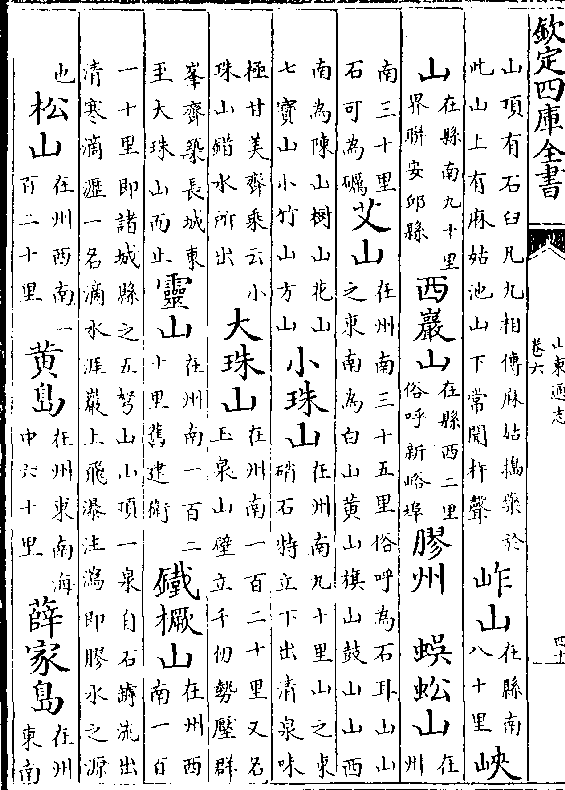 欽定四庫全書
山東通志
卷六
四十
山頂有石臼凡九相傳麻姑搗藥於此山上有麻姑池山下常聞杵聲岞山在縣南八十里峽
山在縣南九十里界聯安邱縣西巖山在縣西二里俗呼新峪埠膠州蜈蚣山在州
南三十里石可為礪艾山在州南三十五里俗呼為石耳山山之東南為白山黃山旗山鼓山山西
南為陳山樹山花山七寶山小竹山方山小珠山在州南九十里山之東硝石特立下出清泉味
極甘美齊乘云小珠山錯水所出大珠山在州南一百二十里又名玉泉山壁立千仞勢壓群
峯齊築長城東至大珠山而止靈山在州南一百二十里舊建衛鐵橛山在州西南一百
一十里即諸城縣之五弩山山頂一泉自石罅流出清寒滴瀝一名滴水涯巖上飛瀑注瀉即膠水之源
也松山在州西南一百二十里黃島在州東南海中六十里薛家島在州東南